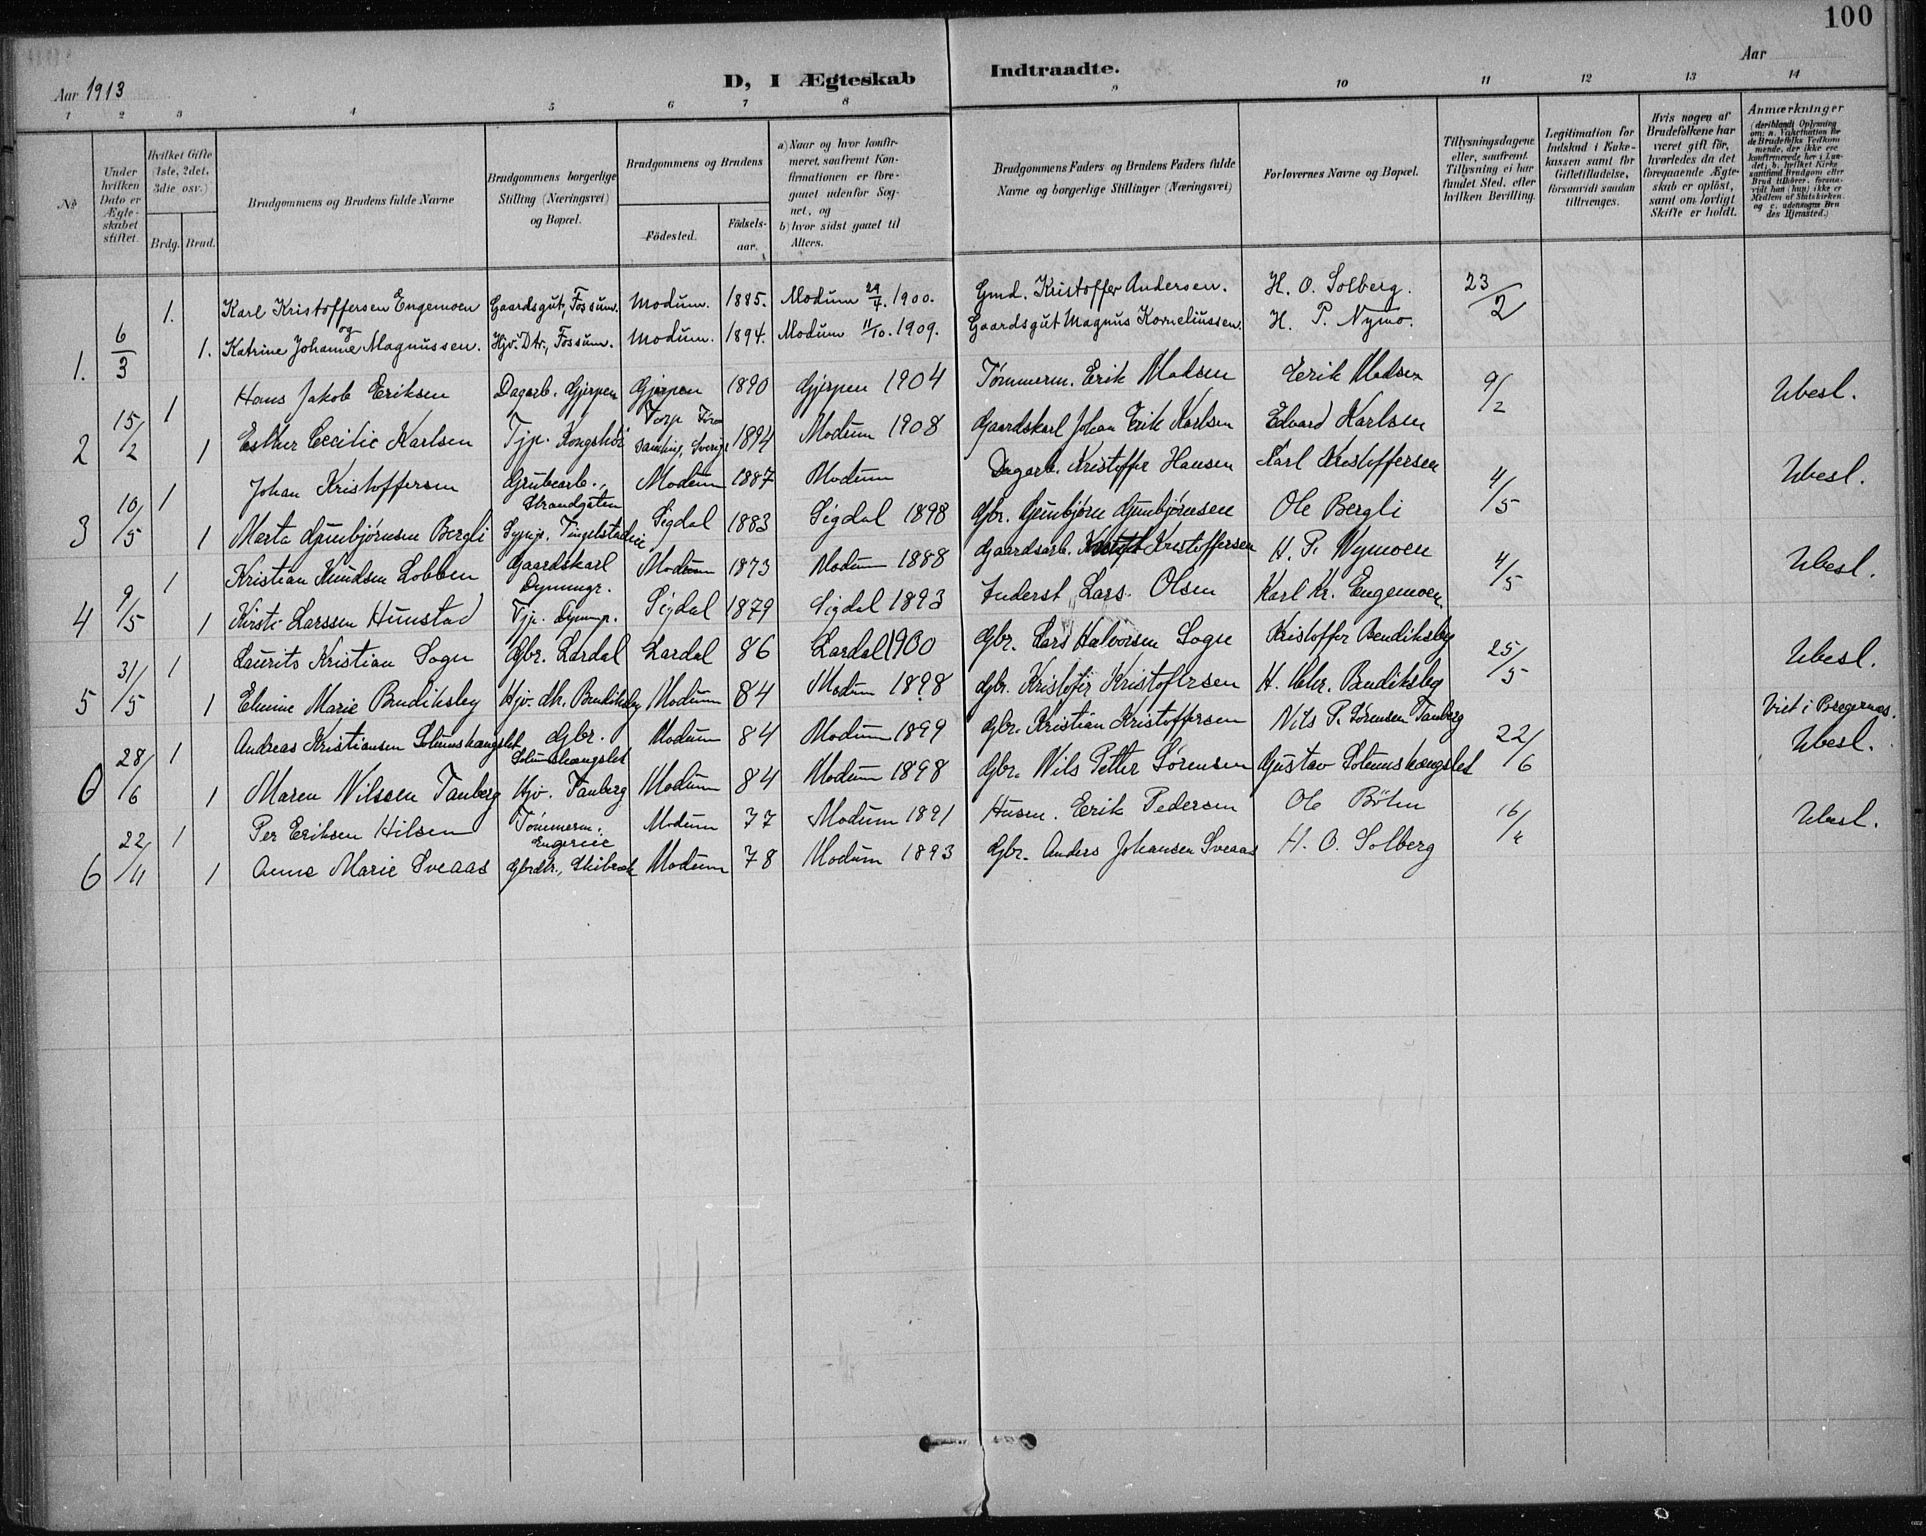 100
Aar 1913
D, I Ægteskab Indtraadte.
Aar
1 2 3 4 5 6 7 8 9 10 11 12 13 14
No
Under hvilken Dato er Ægteskabet stiftet.
Hvilket Gifte (1ste, 2det, 3die osv.)
Brdg. Brud.
Brudgommens og Brudens fulde Navne
Brudgommens borgerlige Stilling (Næringsvei) og Bopæl.
Brudgommens og Brudens
Födested. Födselsaar.
a) Naar og hvor konfirmeret, saafremt Konfirmationen er foregaaet udenfor Sognet, og
b) hvor sidst gaaet til Alters.
Brudgommens Faders og Brudens Faders fulde Navne og borgerlige Stillinger (Næringsvei)
Forlovernes Navne og Bopæl.
Tillysningsdagene eller, saafremt Tillysning ei har fundet Sted, efter hvilken Bevilling.
Legitimation for Indskud i Enkekassen samt for Giftetilladelse, forsaavidt saadan tiltrænges.
Hvis nogen af Brudefolkene har været gift för, hvorledes da det foregaaende Ægteskab er oplöst, samt om lovligt Skifte er holdt.
Anmærkninger
1. 6/3 1. Karl Kristoffersen Engemoen Gaardsgut, Fossum. Modum. 1885. Modum 29/4. 1900. Gmd. Kristoffer Andersen. H. O. Solberg. 23/2
og
1. Katrine Johanne Magnussen. Hjv. Dtr., Fossum. Modum. 1894. Modum 11/10. 1909. Gaardsgut Magnus Korneliussen. H. P. Nymo.
2 15/2 1 Hans Jakob Eriksen Dagarb. Gjerpen Gjerpen 1890 Gjerpen 1904 Tømmerm. Erik Madsen Erik Madsen 9/2 Ubesl.
1 Esther Cecilie Karlsen Tjp. Sverige 1894 Modum 1908 Gaardskarl Johan Erik Karlsen Edvard Karlsen
3 10/5 1 Johan Kristoffersen Grubearb., Strandgaten Modum 1887 Modum Dagarb. Kristoffer Hansen Karl Kristoffersen 4/5 Ubesl.
1 Marta Gunbjørnsen Bergli Sypige. Sigdal 1883 Sigdal 1898 Gbr. Gunbjørn Gunbjørnsen Ole Bergli
4 9/5 1 Kristian Knudsen Lobben Gaardskarl Modum 1873 Modum 1888 Gaardsarb. Kristoffersen H. P. Nymoen 4/5 Ubesl.
1 Kirsti Larssen Hunstad Tjp. Sigdal 1879 Sigdal 1893 Inderst Lars Olsen Karl Kr. Engemoen
5 31/5 1 Laurits Kristian Sogn Gbr. Lardal Lardal 86 Lardal 1900 Gbr. Lars Halvorsen Sogn Kristoffer Bendiksby 25/5 Ubesl.
1 Elenine Marie Bendiksby Hjv. dtr. Bendiksby Modum 84 Modum 1898 Gbr. Kristofer Kristofersen H. Chr. Bendiksby
Viet i Bragernæs.
0 28/6 1 Andreas Kristiansen Solumshængslet Gbr. Solumshængslet Modum 84 Modum 1899 Gbr. Kristian Kristoffersen Nils P. Sørensen Tanberg 22/6 Ubesl.
1 Maren Nilssen Tanberg Hjv. Tanberg Modum 84 Modum 1898 Gbr. Nils Petter Sørensen Gustav Solumshængslet
6 22/11 1 Per Eriksen Hilsen Tømmerm. Modum 77 Modum 1891 Husm. Erik Pedersen Ole Böhn 16/11 Ubesl.
1 Anne Marie Sveaas Gbrdtr., Modum 78 Modum 1893 Gbr. Anders Johansen Sveaas H. O. Solberg